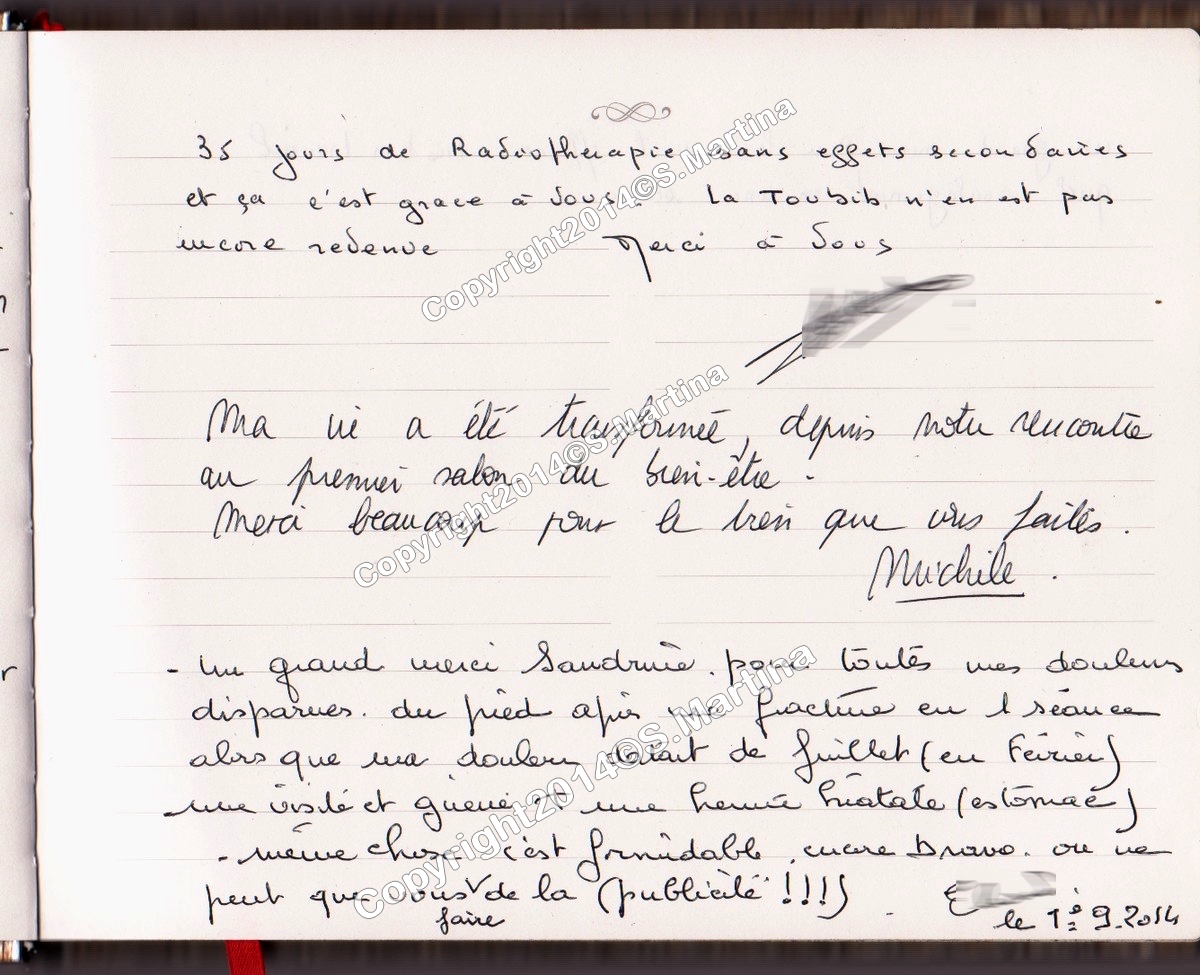 35 jours de Radiothérapie sans effets secondaires
et ça c'est grace à Vous. La Toubib n'en est pas
encore revenue Merci à Vous
Ma vie a été transformée, depuis notre rencontre
au premier salon du bien-être.
Merci beaucoup pour le bien que vous faites.
Michèle.
- un grand merci Sandrine. pour toutes mes douleurs
disparues. du pied après ma fracture en 1 séance
alors que ma douleur datait de Juillet (en Février)
- une et guérie et une hernie hiatale (estomac)
- même chose c'est formidable, encore bravo. on ne
peut que vous de la (publicité !!!)
faire
le 1º 9.2014
Copyright2014©S.Martina
Copyright2014©S.Martina
Copyright2014©S.Martina